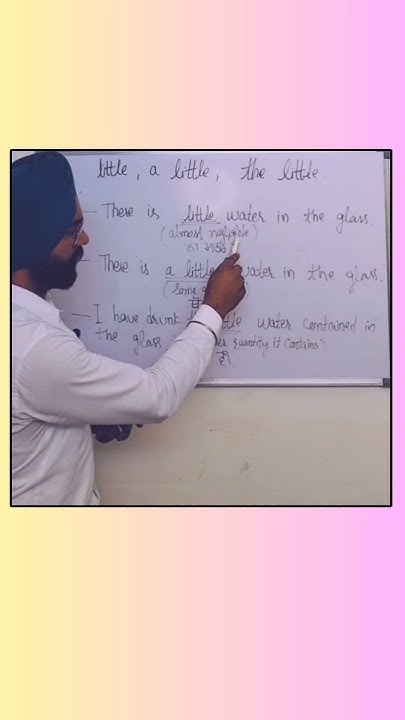 little, a little, the little.
— There is little water in the glass.
(almost negligible)
There is a little water in the glass.
(Some
— I have drunk water contained in
the glass quantity it contains)